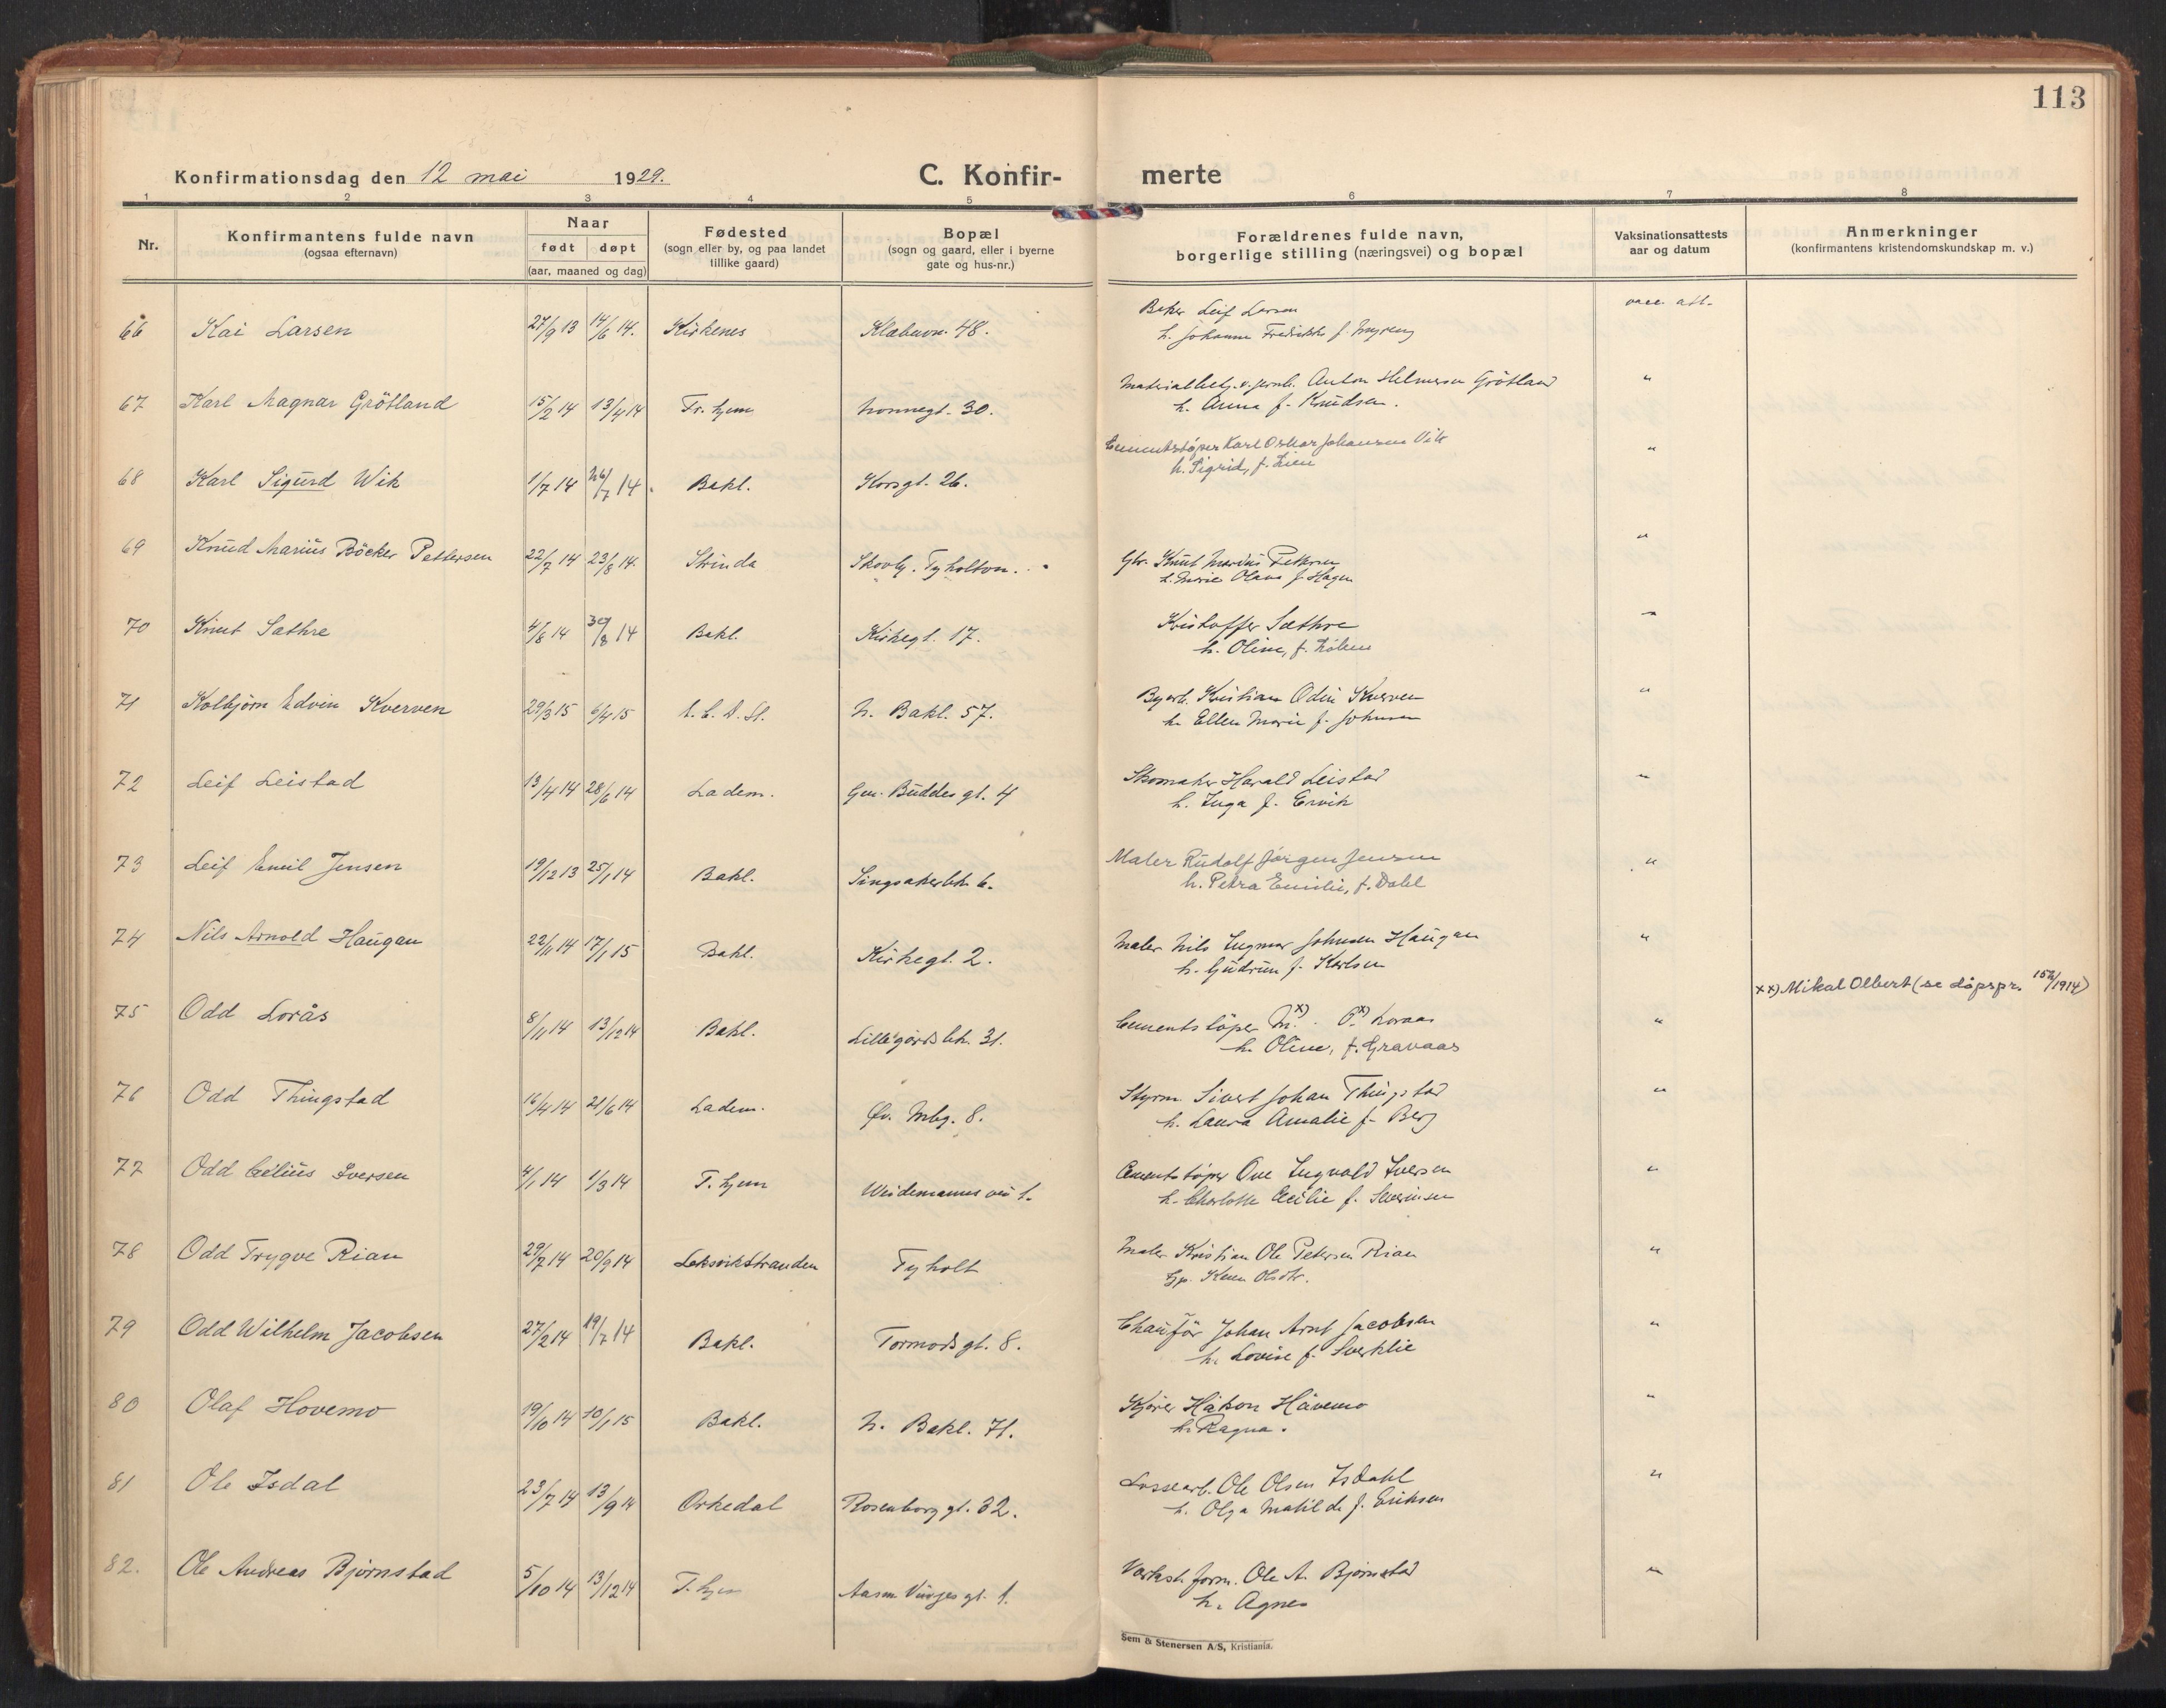 113
Konfirmationsdag den 12 mai 1929.
C. Konfir- merte
1 2 3 4 5 6 7 8
Nr.
Konfirmantens fulde navn
(ogsaa efternavn)
Naar
født døpt
(aar, maaned og dag)
Fødested
(sogn eller by, og paa landet
tillike gaard)
Bopæl
(sogn og gaard, eller i byerne
gate og hus-nr.)
Forældrenes fulde navn,
borgerlige stilling (næringsvei) og bopæl
Vaksinationsattests
aar og datum
Anmerkninger
(konfirmantens kristendomskundskap m. v.)
66 Kai Larsen 27/9 13 14/6 14. Kirkenes Klæbuv. 48. Baker Leif Larsen vacc. att.
h. Johanne Fredrikke f. Myreng
67 Karl Magnar Grötland 15/2 14 13/4 14 Fr. hjem Nonnegt. 30. Materialbetj. v. jernb. Anton Helmersen Grötland "
h. Anna f. Knudsen.
68 Karl Sigurd Wik 1/7 14 26/7 14. Bakl. Korsgt. 26. Cementstøper Karl Oskar Johansen Vik "
h. Sigrid, f. Lien
69 Knud Marius Böcker Pettersen 22/7 14 23/8 14. Strinda Skovly. Tyholtvn. Gbr. Knut Marius Pettersen "
h. Marie Olava f. Hagen
70 Knut Sæthre 4/8 14 30/8 14 Bakl. Kirkegt. 17. Kristoffer Sæthre "
h. Oline, f.
71 Kolbjørn Edvin Kverven 29/3 15 6/4 15 N. Bakl. 57. Byarb. Kristian Odin Kverven "
h. Ellen Marie f. Johnsen
72 Leif Leistad 13/4 14 28/6 14 Ladem. Gen. Buddes gt. 4 Skomaker Harald Leistad "
h. Inga f. Ervik
73 Leif Emil Jensen 19/12 13 25/1 14 Bakl. Singsakerbk. 6. Maler Rudolf Jørgen Jensen "
h. Petra Emilie, f. Dahl
74 Nils Arnold Haugan 22/11 14 17/1 15 Bakl. Kirkegt. 2. Maler Nils Ingmar Johnsen Haugan "
h. Gudrun f. Karlsen
xx) Mikal Olbert (se døpspr. 152/1914)
75 Odd Lorås 8/11 14 13/12 14 Bakl. Lillegårdsbk. 31. Cementstöper M.x) O.x) Loraas "
h. Oline, f. Gravaas
76 Odd Thingstad 16/4 14 21/6 14 Ladem. Øv. Mbg. 8. Styrm. Sivert Johan Thingstad "
h. Laura Amalie f. Berg
77 Odd Celius Iversen 4/1 14 1/3 14 T. hjem Weidemannsvei 1. Cementstöper Ove Ingvald Iversen "
h. Charlotte Cecilie f. Severinsen
78 Odd Trygve Rian 29/7 14 20/9 14 Leksvikstranden Tyholt Maler Kristian Ole Petersen Rian "
Gp. Karen Olsdtr.
79 Odd Wilhelm Jacobsen 27/2 14 19/7 14 Bakl. Tormodsgt. 8. Chauför Johan Arnt Jacobsen "
h. Lovise f. Sverklie
80 Olaf Hovemo 19/10 14 10/1 15 Bakl. N. Bakl. 71. Kjører Håkon Håvemo "
h. Ragna.
81 Ole Isdal 23/7 14 13/9 14 Orkedal Rosenborg gt. 32. Lossearb. Ole Olsen Isdahl "
h. Olga Matilde f. Eriksen
82. Ole Andreas Bjørnstad 5/10 14 13/12 14 T. hjem Aasm Vinjes gt. 1. Verkst. form. Ole A. Bjørnstad "
h. Agnes
Sem & Stenersen A/S, Kristiania.